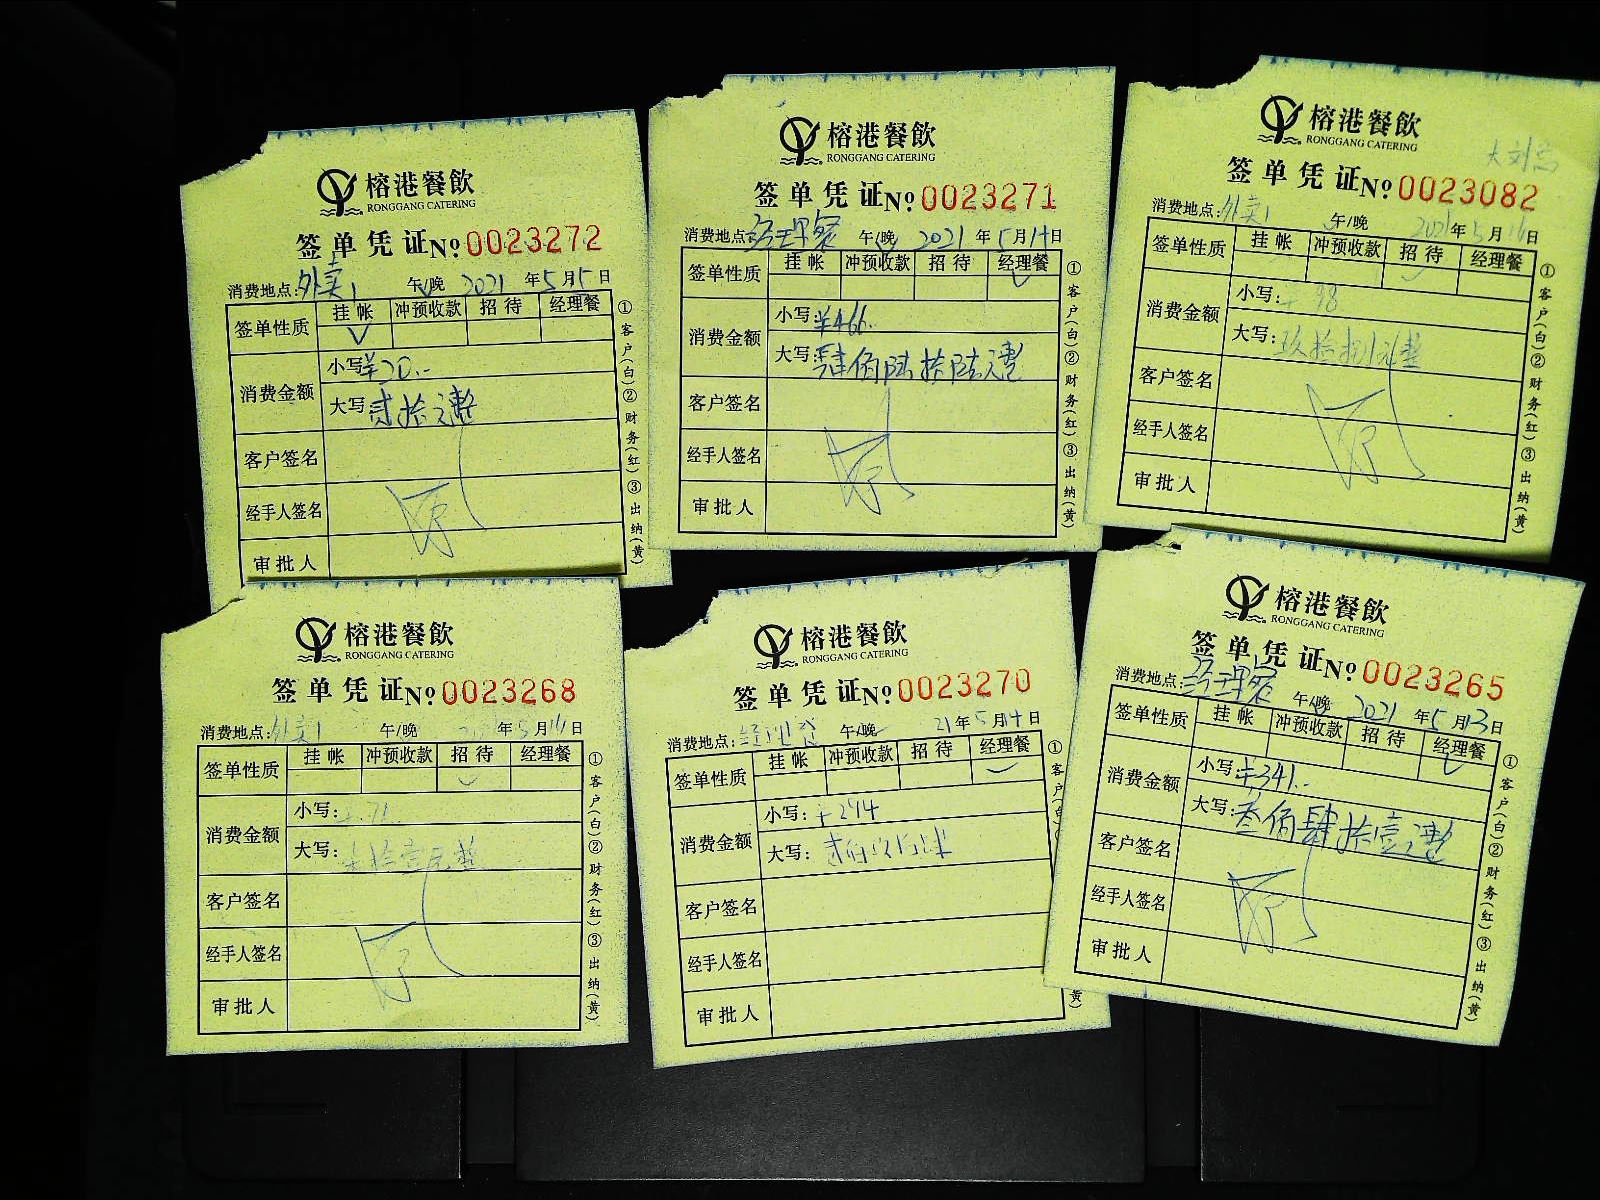 榕港餐飲
RONGGANG CATERING
签单凭证 № 0023272
消费地点:外卖1 午/晚 2021年5月15日
签单性质 挂帐 冲预收款 招待 经理餐
消费金额 小写:¥20.-
大写:贰拾元整
客户签名
经手人签名
审批人
①客户(白)②财务(红)③出纳(黄)
榕港餐飲
RONGGANG CATERING
签单凭证 № 0023271
消费地点:经理餐 午/晚 2021年5月14日
签单性质 挂帐 冲预收款 招待 经理餐
消费金额 小写:¥466.-
大写:肆佰陆拾陆元整
客户签名
经手人签名
审批人
①客户(白)②财务(红)③出纳(黄)
榕港餐飲
RONGGANG CATERING
签单凭证 № 0023082
消费地点:外卖1 午/晚 2021年5月16日
签单性质 挂帐 冲预收款 招待 经理餐
消费金额 小写:¥98
大写:玖拾捌元整
客户签名
经手人签名
审批人
①客户(白)②财务(红)③出纳(黄)
榕港餐飲
RONGGANG CATERING
签单凭证 № 0023268
消费地点:外卖1 午/晚 年5月14日
签单性质 挂帐 冲预收款 招待 经理餐
消费金额 小写:71.
大写:柒拾壹元整
客户签名
经手人签名
审批人
①客户(白)②财务(红)③出纳(黄)
榕港餐飲
RONGGANG CATERING
签单凭证 № 0023270
消费地点:经理餐 午/晚 21年5月14日
签单性质 挂帐 冲预收款 招待 经理餐
消费金额 小写:¥294
大写:
客户签名
经手人签名
审批人
①客户(白)
(黄)
榕港餐飲
RONGGANG CATERING
签单凭证 № 0023265
消费地点:经理餐 午/晚 2021年5月13日
签单性质 挂帐 冲预收款 招待 经理餐
消费金额 小写:¥341.-
大写:叁佰肆拾壹元整
客户签名
经手人签名
审批人
①客户(白)②财务(红)③出纳(黄)